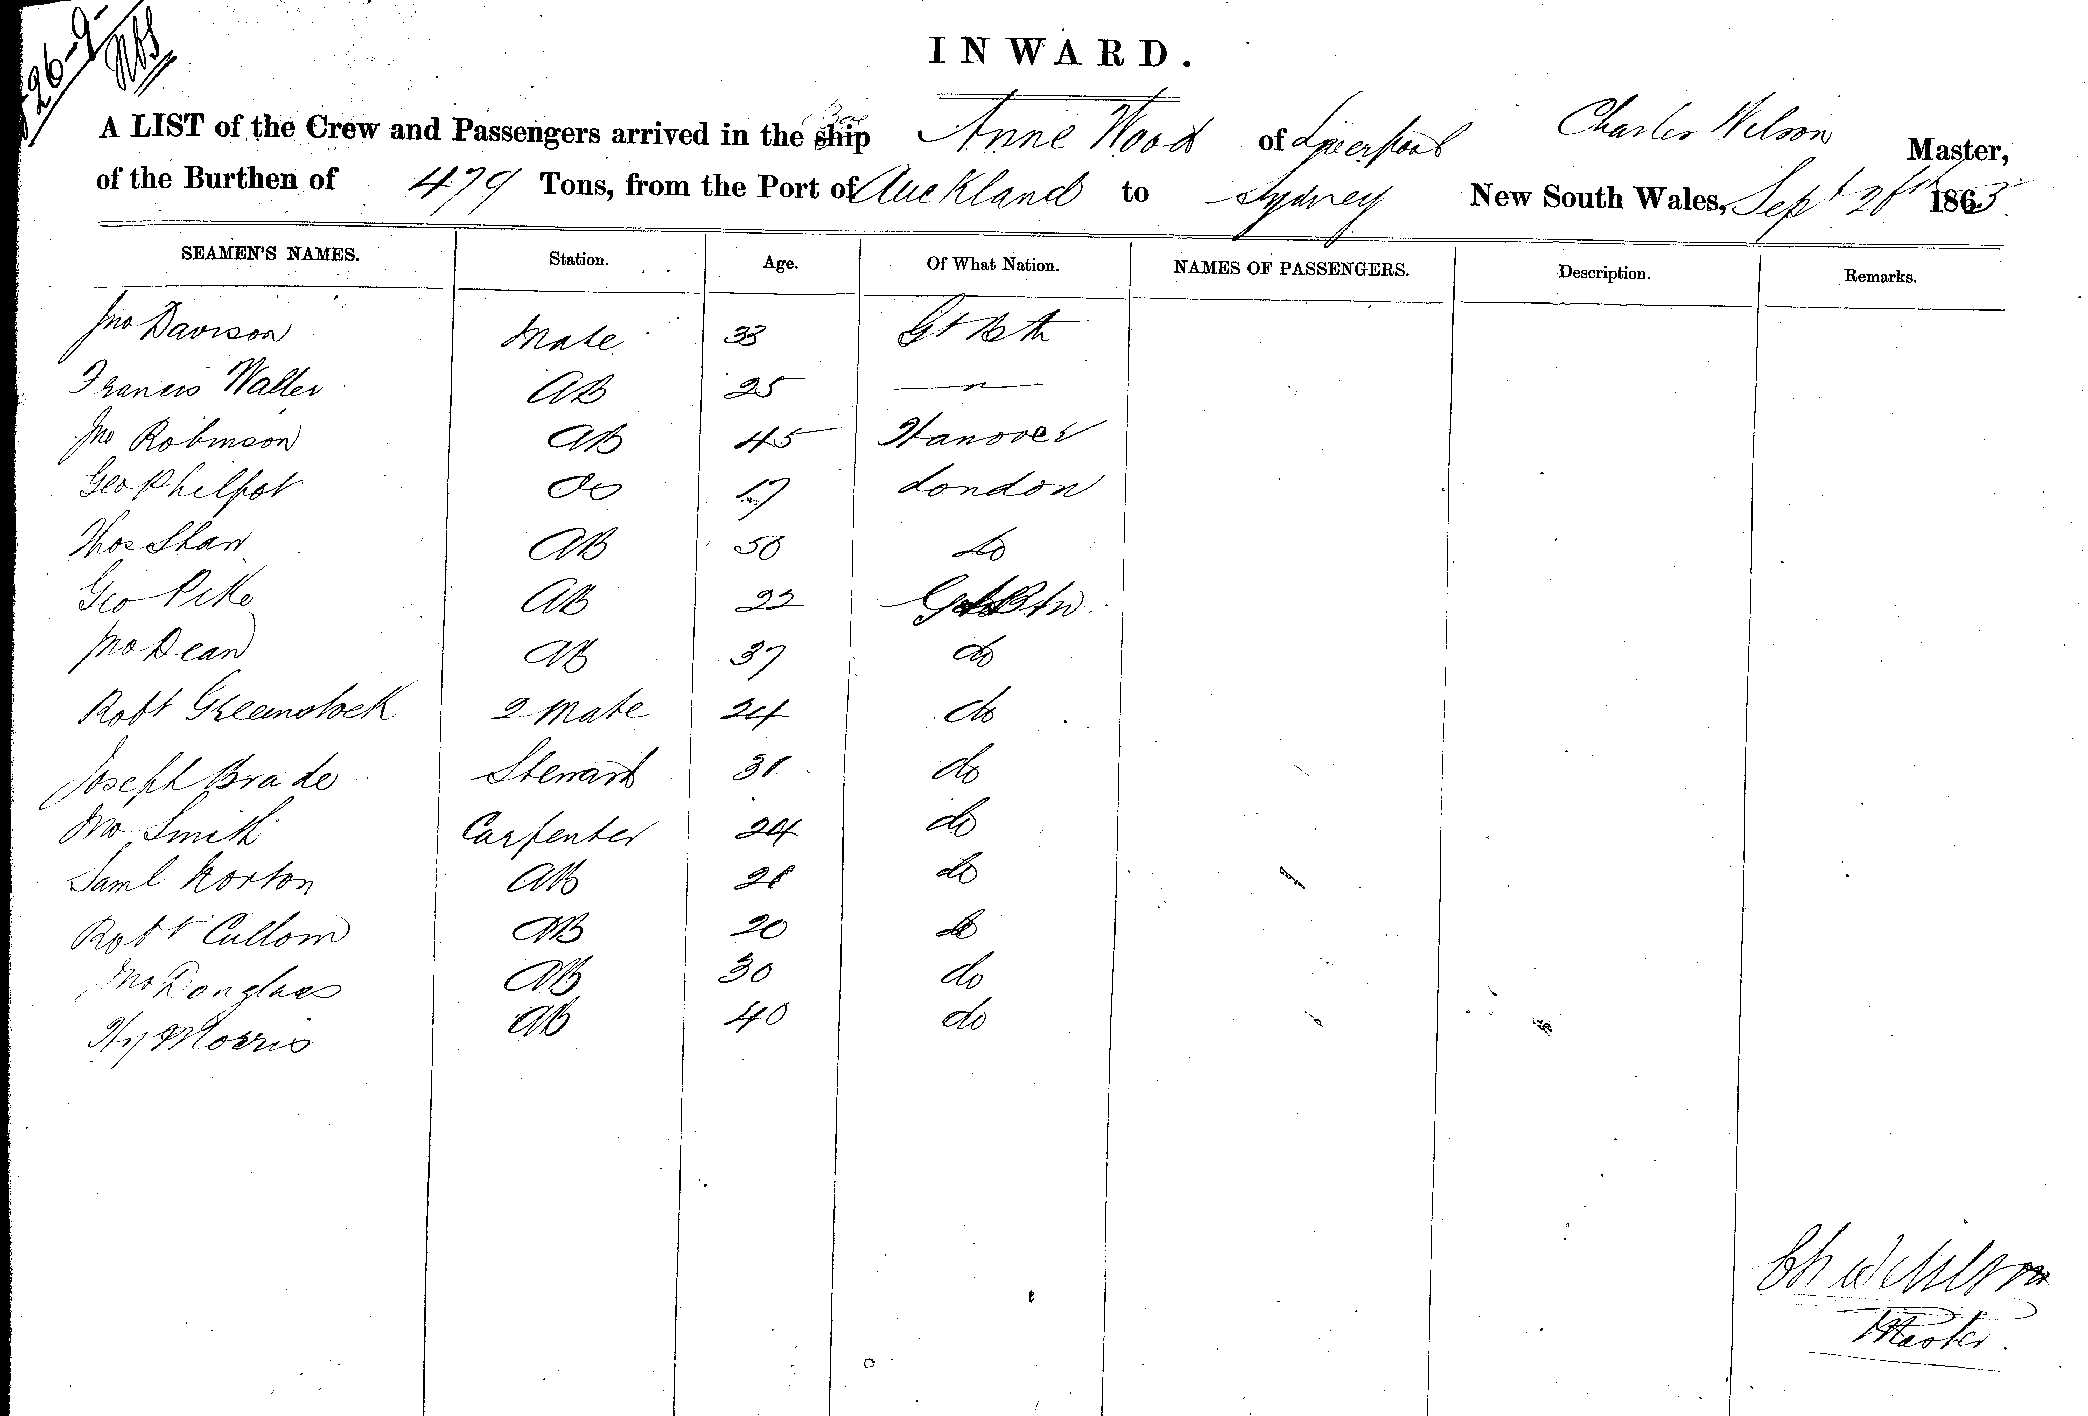 26-9-
INWARD.
A LIST of the Crew and Passengers arrived in the ship Anne Wood of Liverpool Charles Wilson Master,
of the Burthen of 479 Tons, from the Port of Auckland to Sydney New South Wales, Sept 26th 1863.
SEAMEN'S NAMES. Station. Age. Of What Nation. NAMES OF PASSENGERS. Description. Remarks.
Jno Davison Mate 33 Gt Btn
Francis Walter AB 25 — " —
Jno Robinson AB 45 Hanover
Geo Philpot OS 17 London
Thos Shaw AB 50 do
Geo Pike AB 22 Gt Btn
Jno Dean AB 37 do
Robt Greenstock 2 Mate 24 do
Joseph Brade Steward 31 do
Jno Smith Carpenter 24 do
Saml Norton AB 28 do
Robt Cullom AB 20 do
Jno Douglas AB 30 do
Hy Morris AB 40 do
Ch Wilson
Master.